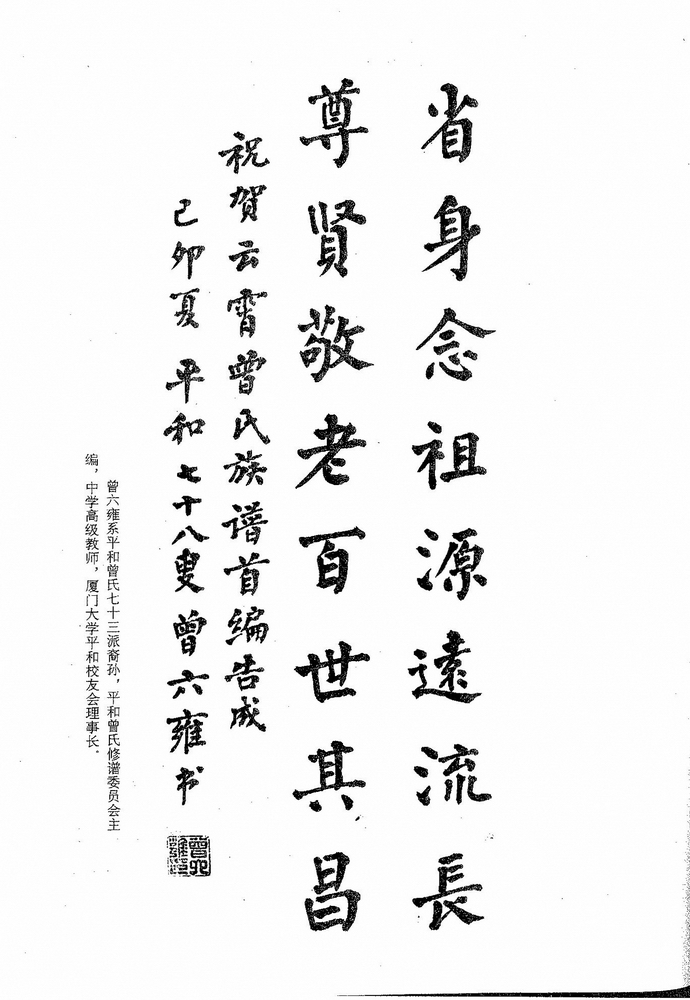 省身念祖源遠流長
尊賢敬老百世其昌
祝贺云霄曾氏族谱首编告成
己卯夏 平和七十八叟曾六雍书
曾六雍系平和曾氏七十三派裔孙，平和曾氏修谱委员会主
编，中学高级教师，厦门大学平和校友会理事长．